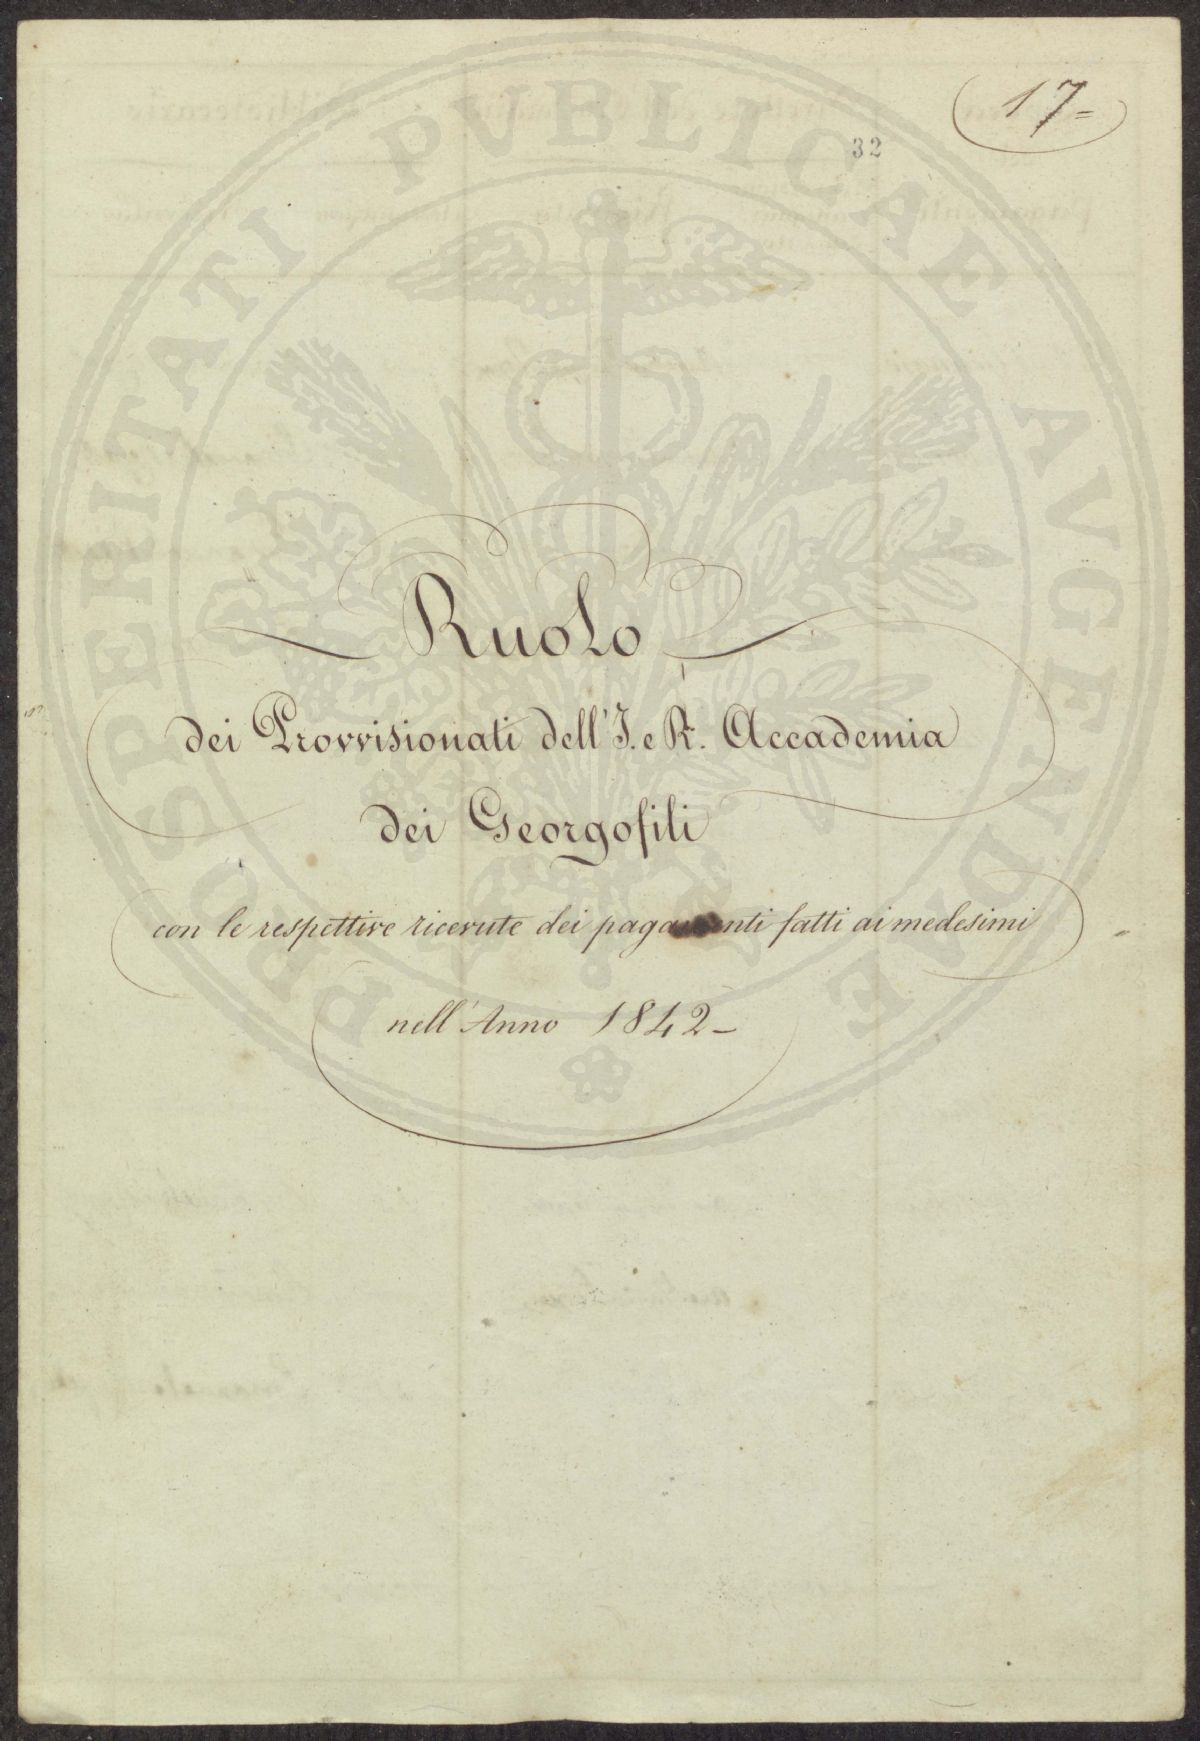 17=
32
PROSPERITATI PVBLICAE AVGENDAE
Ruolo
dei Provvisionati dell'I. e R. Accademia
dei Georgofili
con le respettive ricevute dei pagamenti fatti ai medesimi
nell'Anno 1842_